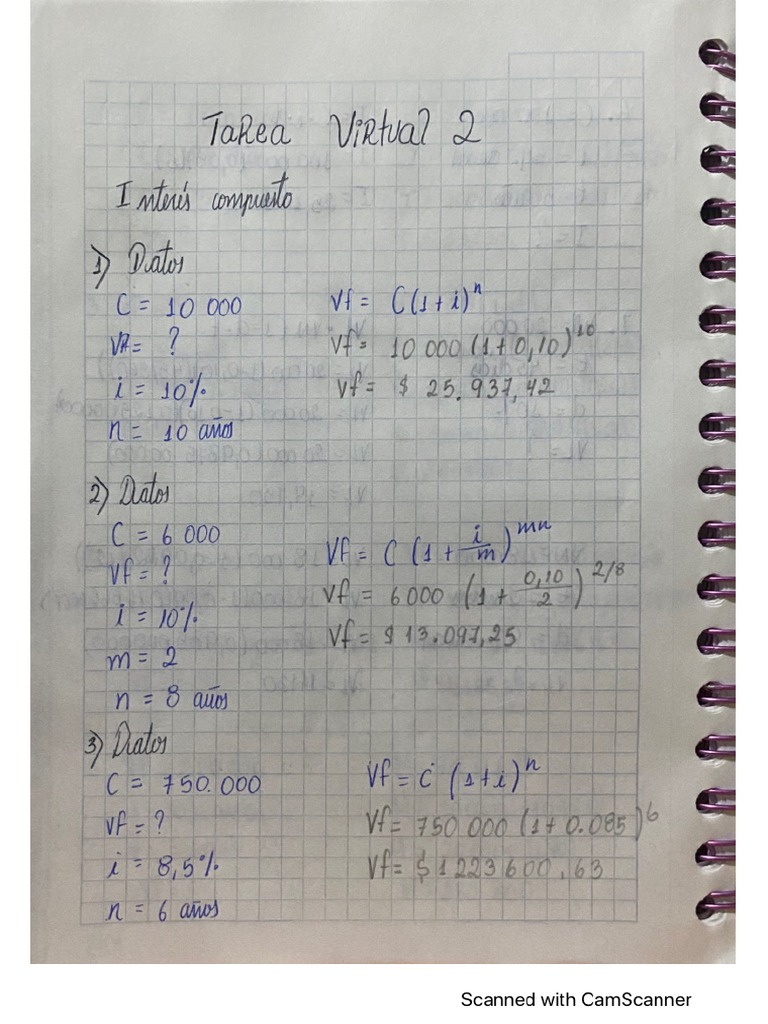 Tarea Virtual 2
Interés compuesto
1) Datos
C = 10 000
VA = ?
i = 10%
n = 10 años
Vf = C(1+i)^n
Vf = 10 000 (1+0,10)^10
Vf = $ 25.937,42
2) Datos
C = 6 000
Vf = ?
i = 10%
m = 2
n = 8 años
Vf = C (1 + i/m)^mn
Vf = 6000 (1 + 0,10/2)^2/8
Vf = $ 13.097,25
3) Datos
C = 750.000
Vf = ?
i = 8,5%
n = 6 años
Vf = C (1+i)^n
Vf = 750 000 (1+0.085)^6
Vf = $ 1 223 600.63
Scanned with CamScanner